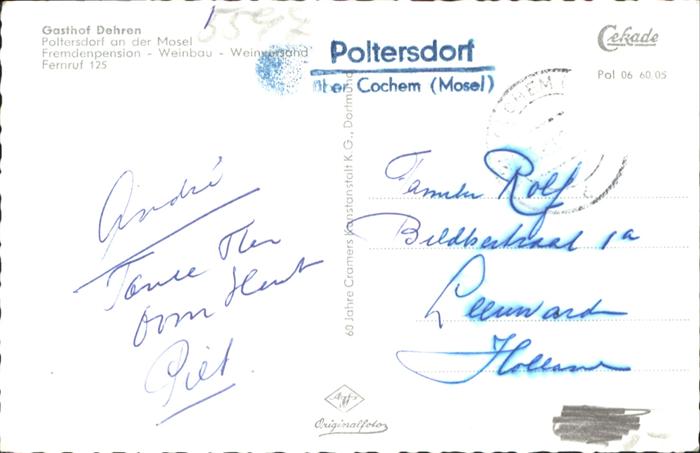 5597
Gasthof Dehren
Poltersdorf an der Mosel
Fremdenpension - Weinbau - Weinversand
Fernruf 125
Poltersdorf
über Cochem (Mosel)
Cekade
Pol 06 60 05
COCHEM
60 Jahre Cramers Kunstanstalt K.G., Dortmund
André
Tante
Oom
Piet.
Familie Rolf
1a
Leeuwarden
Holland
Agfa
Originalfoto